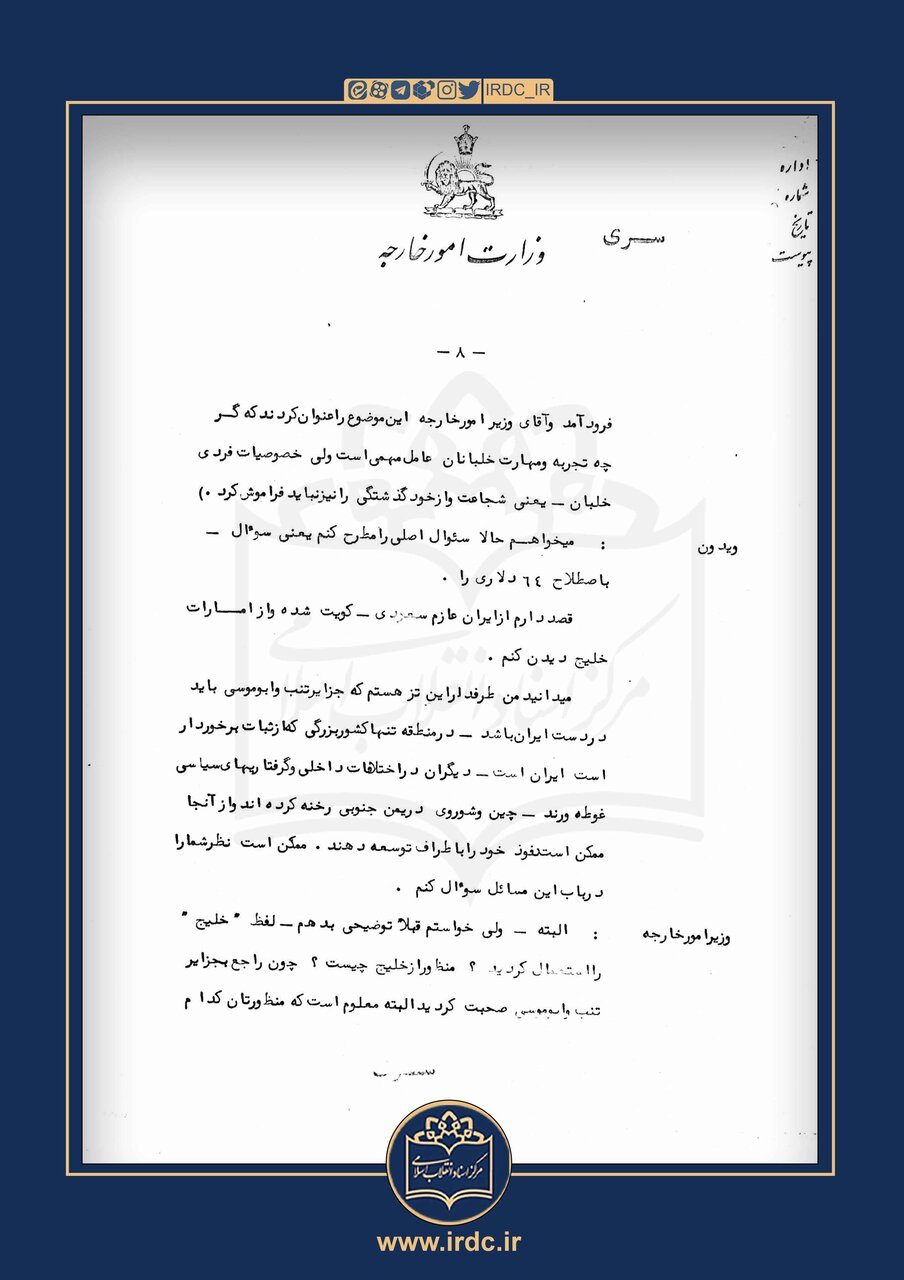 IRDC_IR
اداره
شماره
تاریخ
پیوست
سری
وزارت امور خارجه
— ۸ —
فرود آمد وآقای وزیر امور خارجه این موضوع را عنوان کردند که گـر
چه تجربه ومهارت خلبانان عامل مهمی است ولی خصوصیات فردی
خلبان ـ یعنی شجاعت واز خود گذشتگی را نیز نباید فراموش کرد .)
ویدون : میخواهـم حالا سئوال اصلی را مطرح کنم یعنی سوءال ـ
باصطلاح ٦٤ دلاری را .
قصد دارم از ایران عازم سعودی ـ کویت شده واز امـــارات
خلیج دیدن کنم .
میدانید من طرفدار این تز هستم که جزایر تنب وابوموسی باید
در دست ایران باشد ـ در منطقه تنها کشور بزرگی که از ثبات برخوردار
است ایران است ـ دیگران در اختلافات داخلی وگرفتاریهای سیاسی
غوطه ورند ـ چین وشوروی در یمن جنوبی رخنه کرده اند واز آنجا
ممکن است نفوذ خود را باطراف توسعه دهند . ممکن است نظر شما را
در باب این مسائل سوءال کنم .
وزیر امور خارجه : البته ـ ولی خواستم قبلا" توضیحی بدهم ـ لفظ "خلیج"
را استعمال کردید ؟ منظور از خلیج چیست ؟ چون راجع بجزایر
تنب وابوموسی صحبت کردید البته معلوم است که منظورتان کدام
مرکز اسناد انقلاب اسلامی
مرکز اسناد انقلاب اسلامی
www.irdc.ir